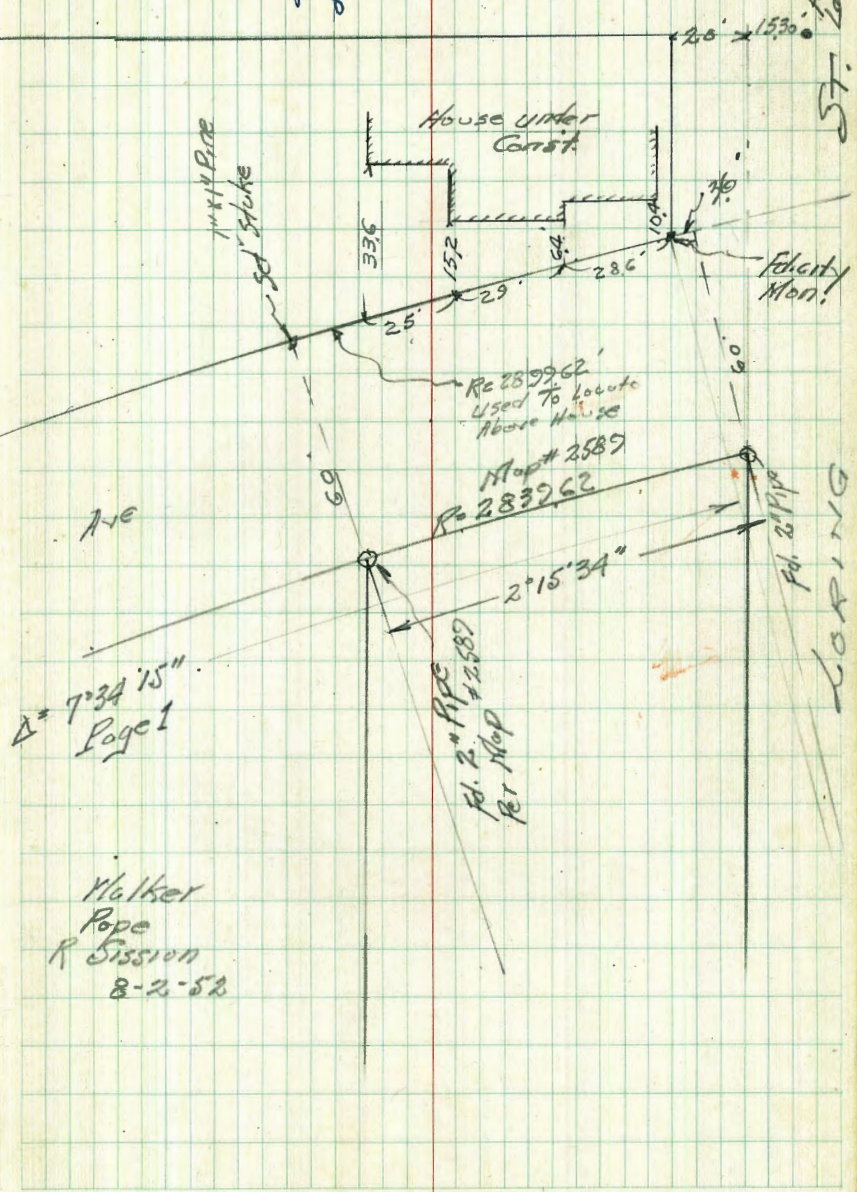 20'
15.30'
St.
House under
Const.
1"x1" Pine
Set Stake
33.6
15.2
6.4
10.4
25'
29'
28.6'
Fd. city
Mon.
R= 2899.62'
Used To Locate
Above House
Map # 2589
R= 2839.62
60
60'
Ave
2°15'34"
Fd. 2" Pipe
LORING
Δ= 7°34'15"
Page 1
Fd. 2" Pipe
Per Map #2589
Walker
Pope
R Sission
8-2-52